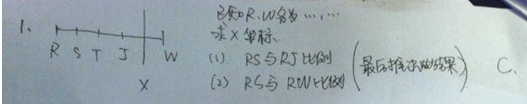 1.
R S T J W
X
已知R、W各为……,……
求X坐标.
(1) RS与RJ比例
(2) RS与RW比例 (最后推出的结果) C.